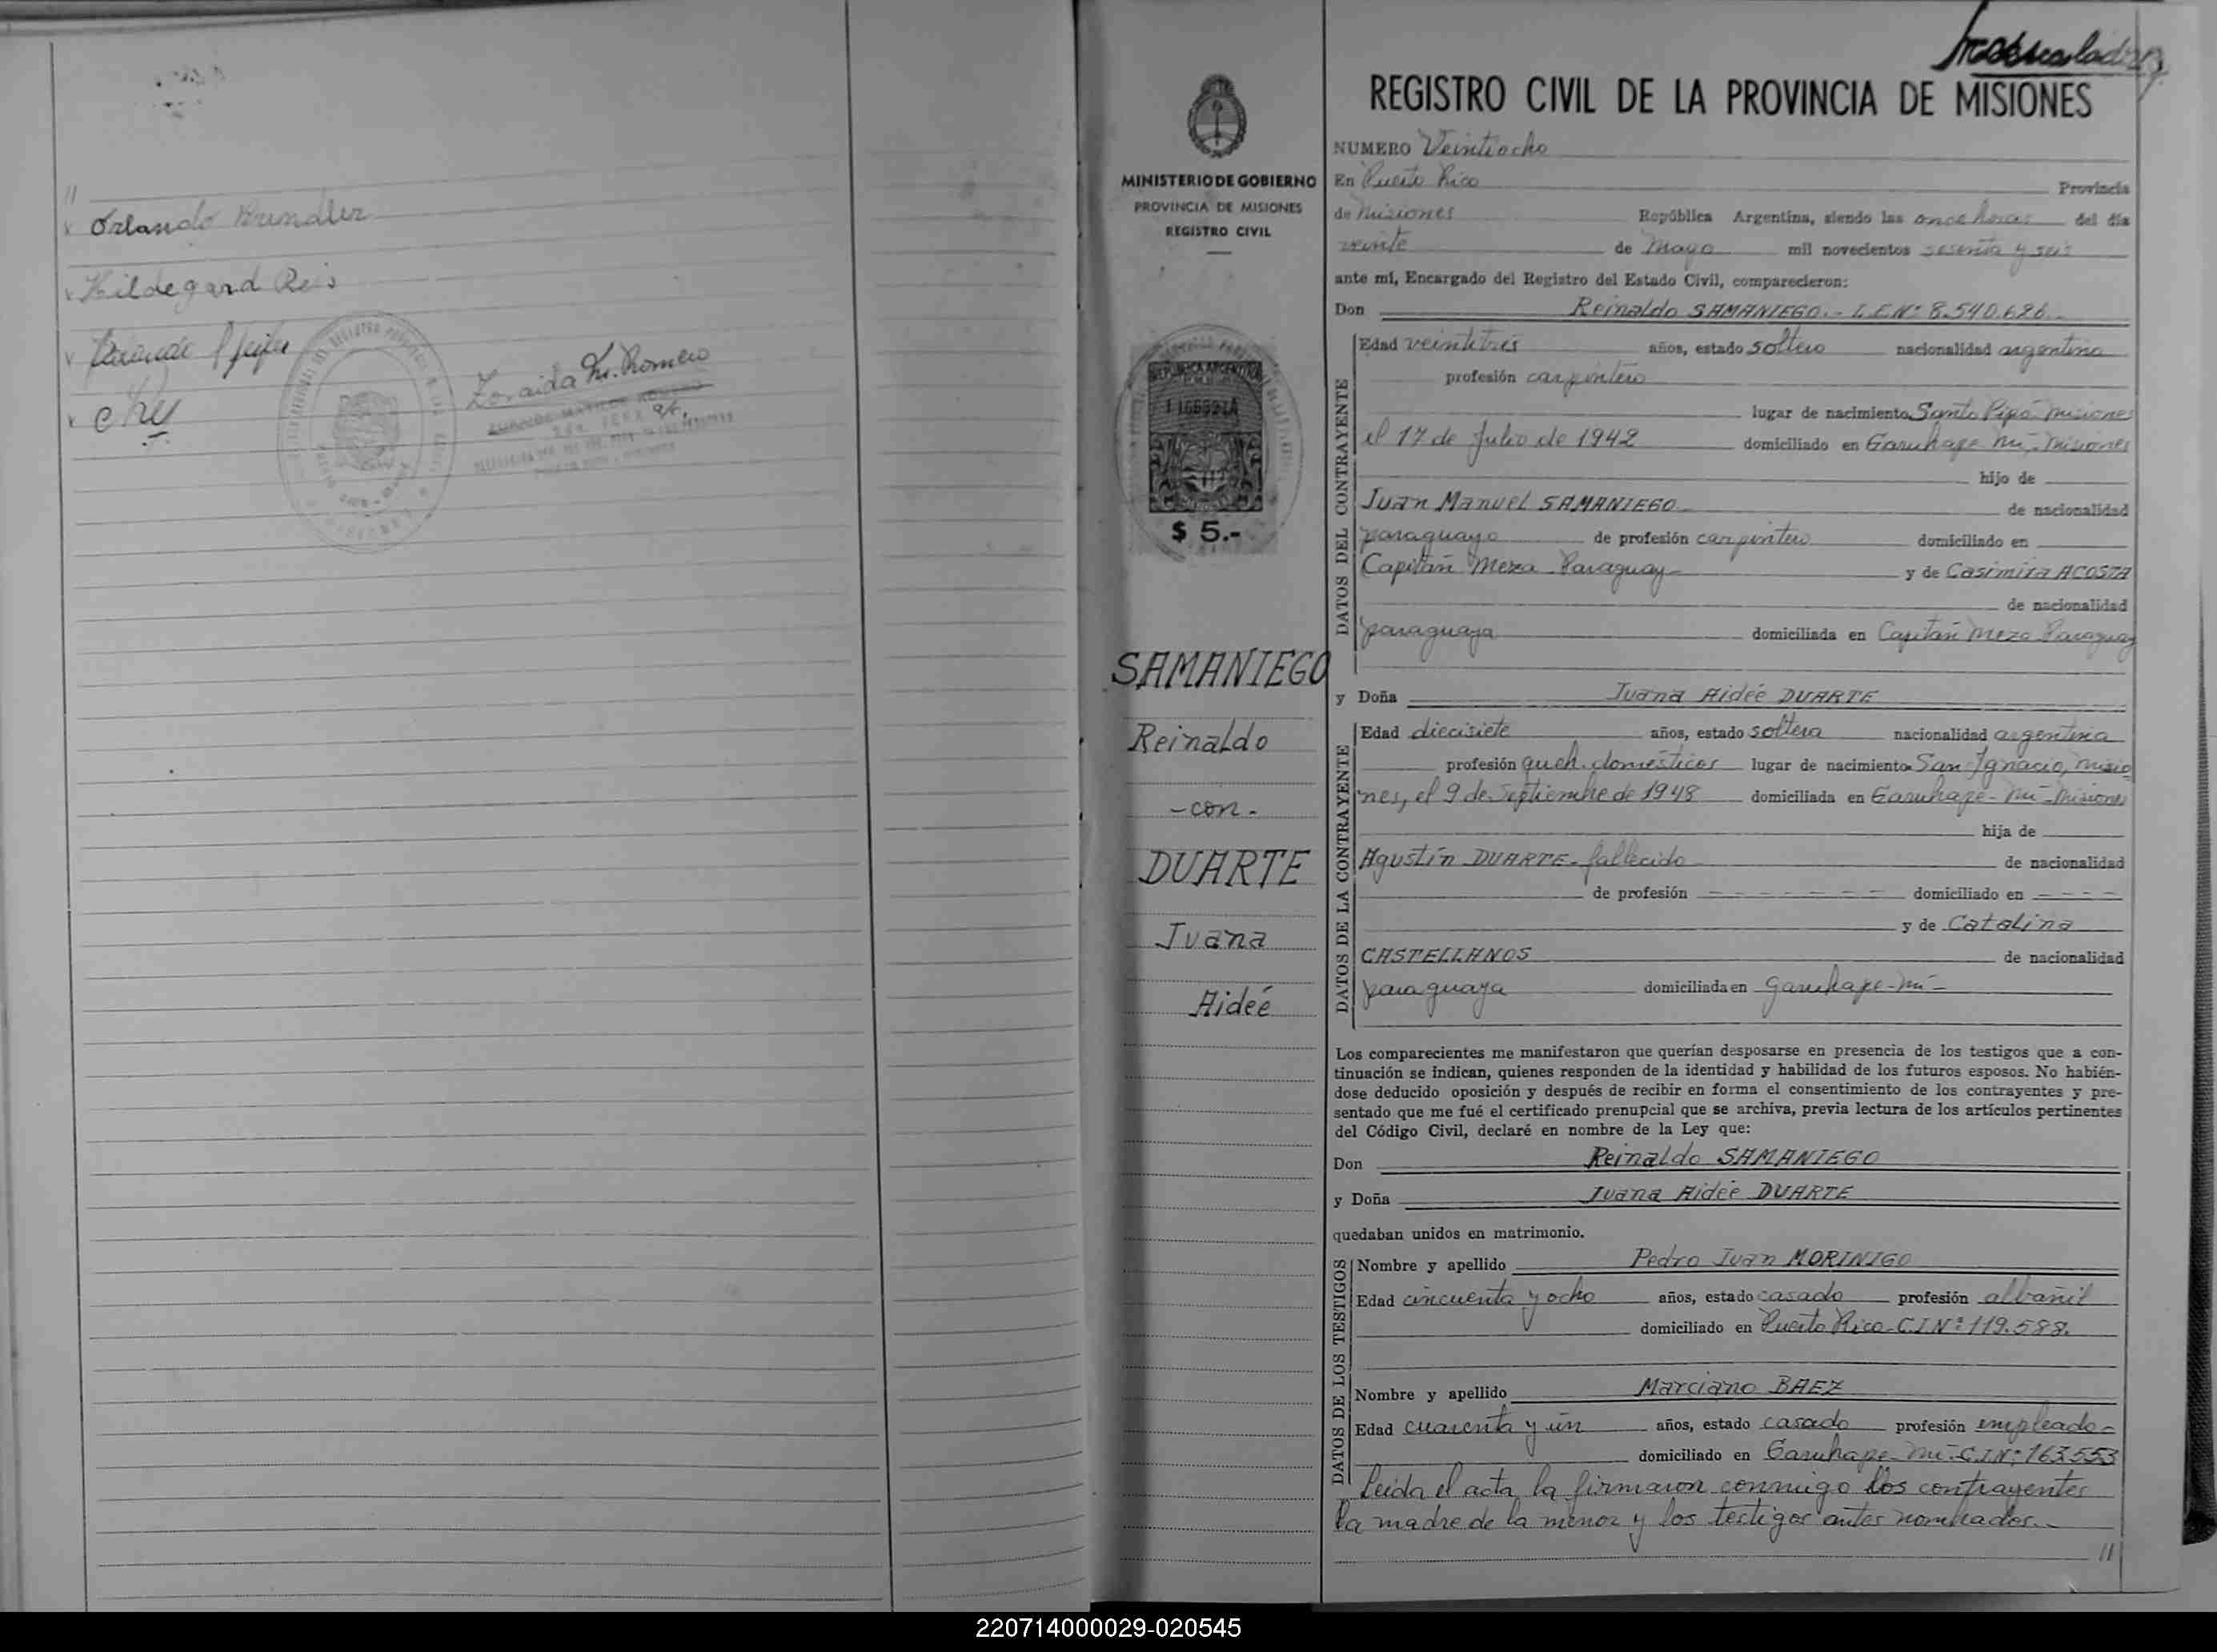 //
x Orlando Brundler
x Hildegard Reis
x
x
Zoraida M. Romero
Inmaculado
REGISTRO CIVIL DE LA PROVINCIA DE MISIONES
MINISTERIO DE GOBIERNO
PROVINCIA DE MISIONES
REGISTRO CIVIL
REPUBLICA ARGENTINA
$ 5.-
SAMANIEGO
Reinaldo
-con-
DUARTE
Juana
Aideé
NUMERO Veintiocho
En Puerto Rico Provincia
de Misiones República Argentina, siendo las once horas del día
veinte de Mayo mil novecientos sesenta y seis
ante mí, Encargado del Registro del Estado Civil, comparecieron:
Don Reinaldo SAMANIEGO.- L.E.Nº 8.540.626.-
DATOS DEL CONTRAYENTE
Edad veintitrés años, estado soltero nacionalidad argentina
profesión carpintero
lugar de nacimiento Santo Pipó-Misiones
el 17 de Julio de 1942 domiciliado en Garuhape-mí-Misiones
hijo de
Juan Manuel SAMANIEGO de nacionalidad
paraguayo de profesión carpintero domiciliado en
Capitán Meza Paraguay y de Casimira ACOSTA
de nacionalidad
paraguaya domiciliada en Capitán Meza Paraguay
y Doña Juana Aideé DUARTE
DATOS DE LA CONTRAYENTE
Edad diecisiete años, estado soltera nacionalidad argentina
profesión queh. domésticos lugar de nacimiento San Ignacio, Misio
nes, el 9 de Septiembre de 1948 domiciliada en Garuhape-mí-Misiones
hija de
Agustín DUARTE-fallecido de nacionalidad
de profesión - - - - - - - domiciliado en - - - -
y de Catalina
CASTELLANOS de nacionalidad
paraguaya domiciliada en Garuhape-mí-
Los comparecientes me manifestaron que querían desposarse en presencia de los testigos que a con-
tinuación se indican, quienes responden de la identidad y habilidad de los futuros esposos. No habién-
dose deducido oposición y después de recibir en forma el consentimiento de los contrayentes y pre-
sentado que me fué el certificado prenupcial que se archiva, previa lectura de los artículos pertinentes
del Código Civil, declaré en nombre de la Ley que:
Don Reinaldo SAMANIEGO
y Doña Juana Aideé DUARTE
quedaban unidos en matrimonio.
DATOS DE LOS TESTIGOS
Nombre y apellido Pedro Juan MORINIGO
Edad cincuenta y ocho años, estado casado profesión albañil
domiciliado en Puerto Rico-C.I.Nº 119.588.
Nombre y apellido Marciano BAEZ
Edad cuarenta y un años, estado casado profesión empleado-
domiciliado en Garuhape-mí-C.I.Nº 163.553
Leída el acta, la firmaron conmigo los contrayentes
la madre de la menor y los testigos antes nombrados.-
//
220714000029-020545